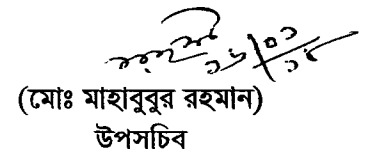 (মোঃ মাহাবুবুর রহমান)
উপসচিব